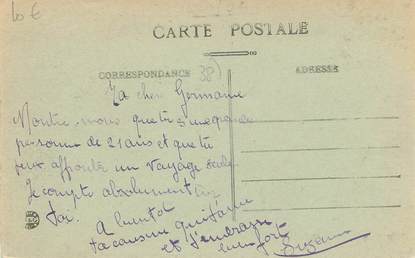 10 €
CARTE POSTALE
CORRESPONDANCE
38
ADRESSE
Ma chère Germaine
Montre-nous que tu es une grande
personne de 21 ans et que tu
peux affronter un voyage
Je compte absolument sur
toi.
A bientôt
ta cousine qui t'aime
et t'embrasse
bien fort
Suzanne